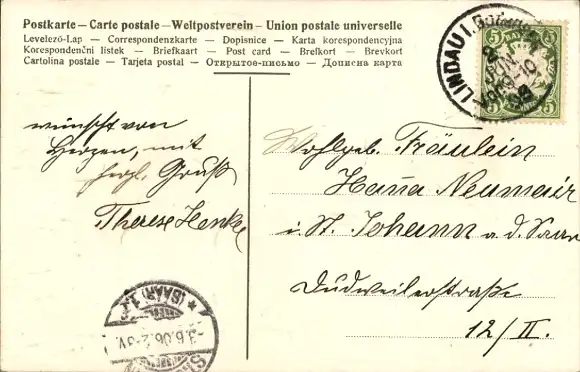 Postkarte — Carte postale — Weltpostverein — Union postale universelle
Levelező-Lap — Correspondenzkarte — Dopisnice — Karta korespondencyjna
Korespondenční lístek — Briefkaart — Post card — Brefkort — Brevkort
Cartolina postale — Tarjeta postal — Открытое-письмо — Дописна карта
wünscht von
Herzen, mit
herzl. Gruß
Therese Henke
Wohlgeb. Fräulein
Hanna Neumair
i. St. Johann a. d. Saar
Dudweilerstraße
12/II.
LINDAU I.
2
JUN
5 BAYERN 5
(SAAR) 1
3.6.06.